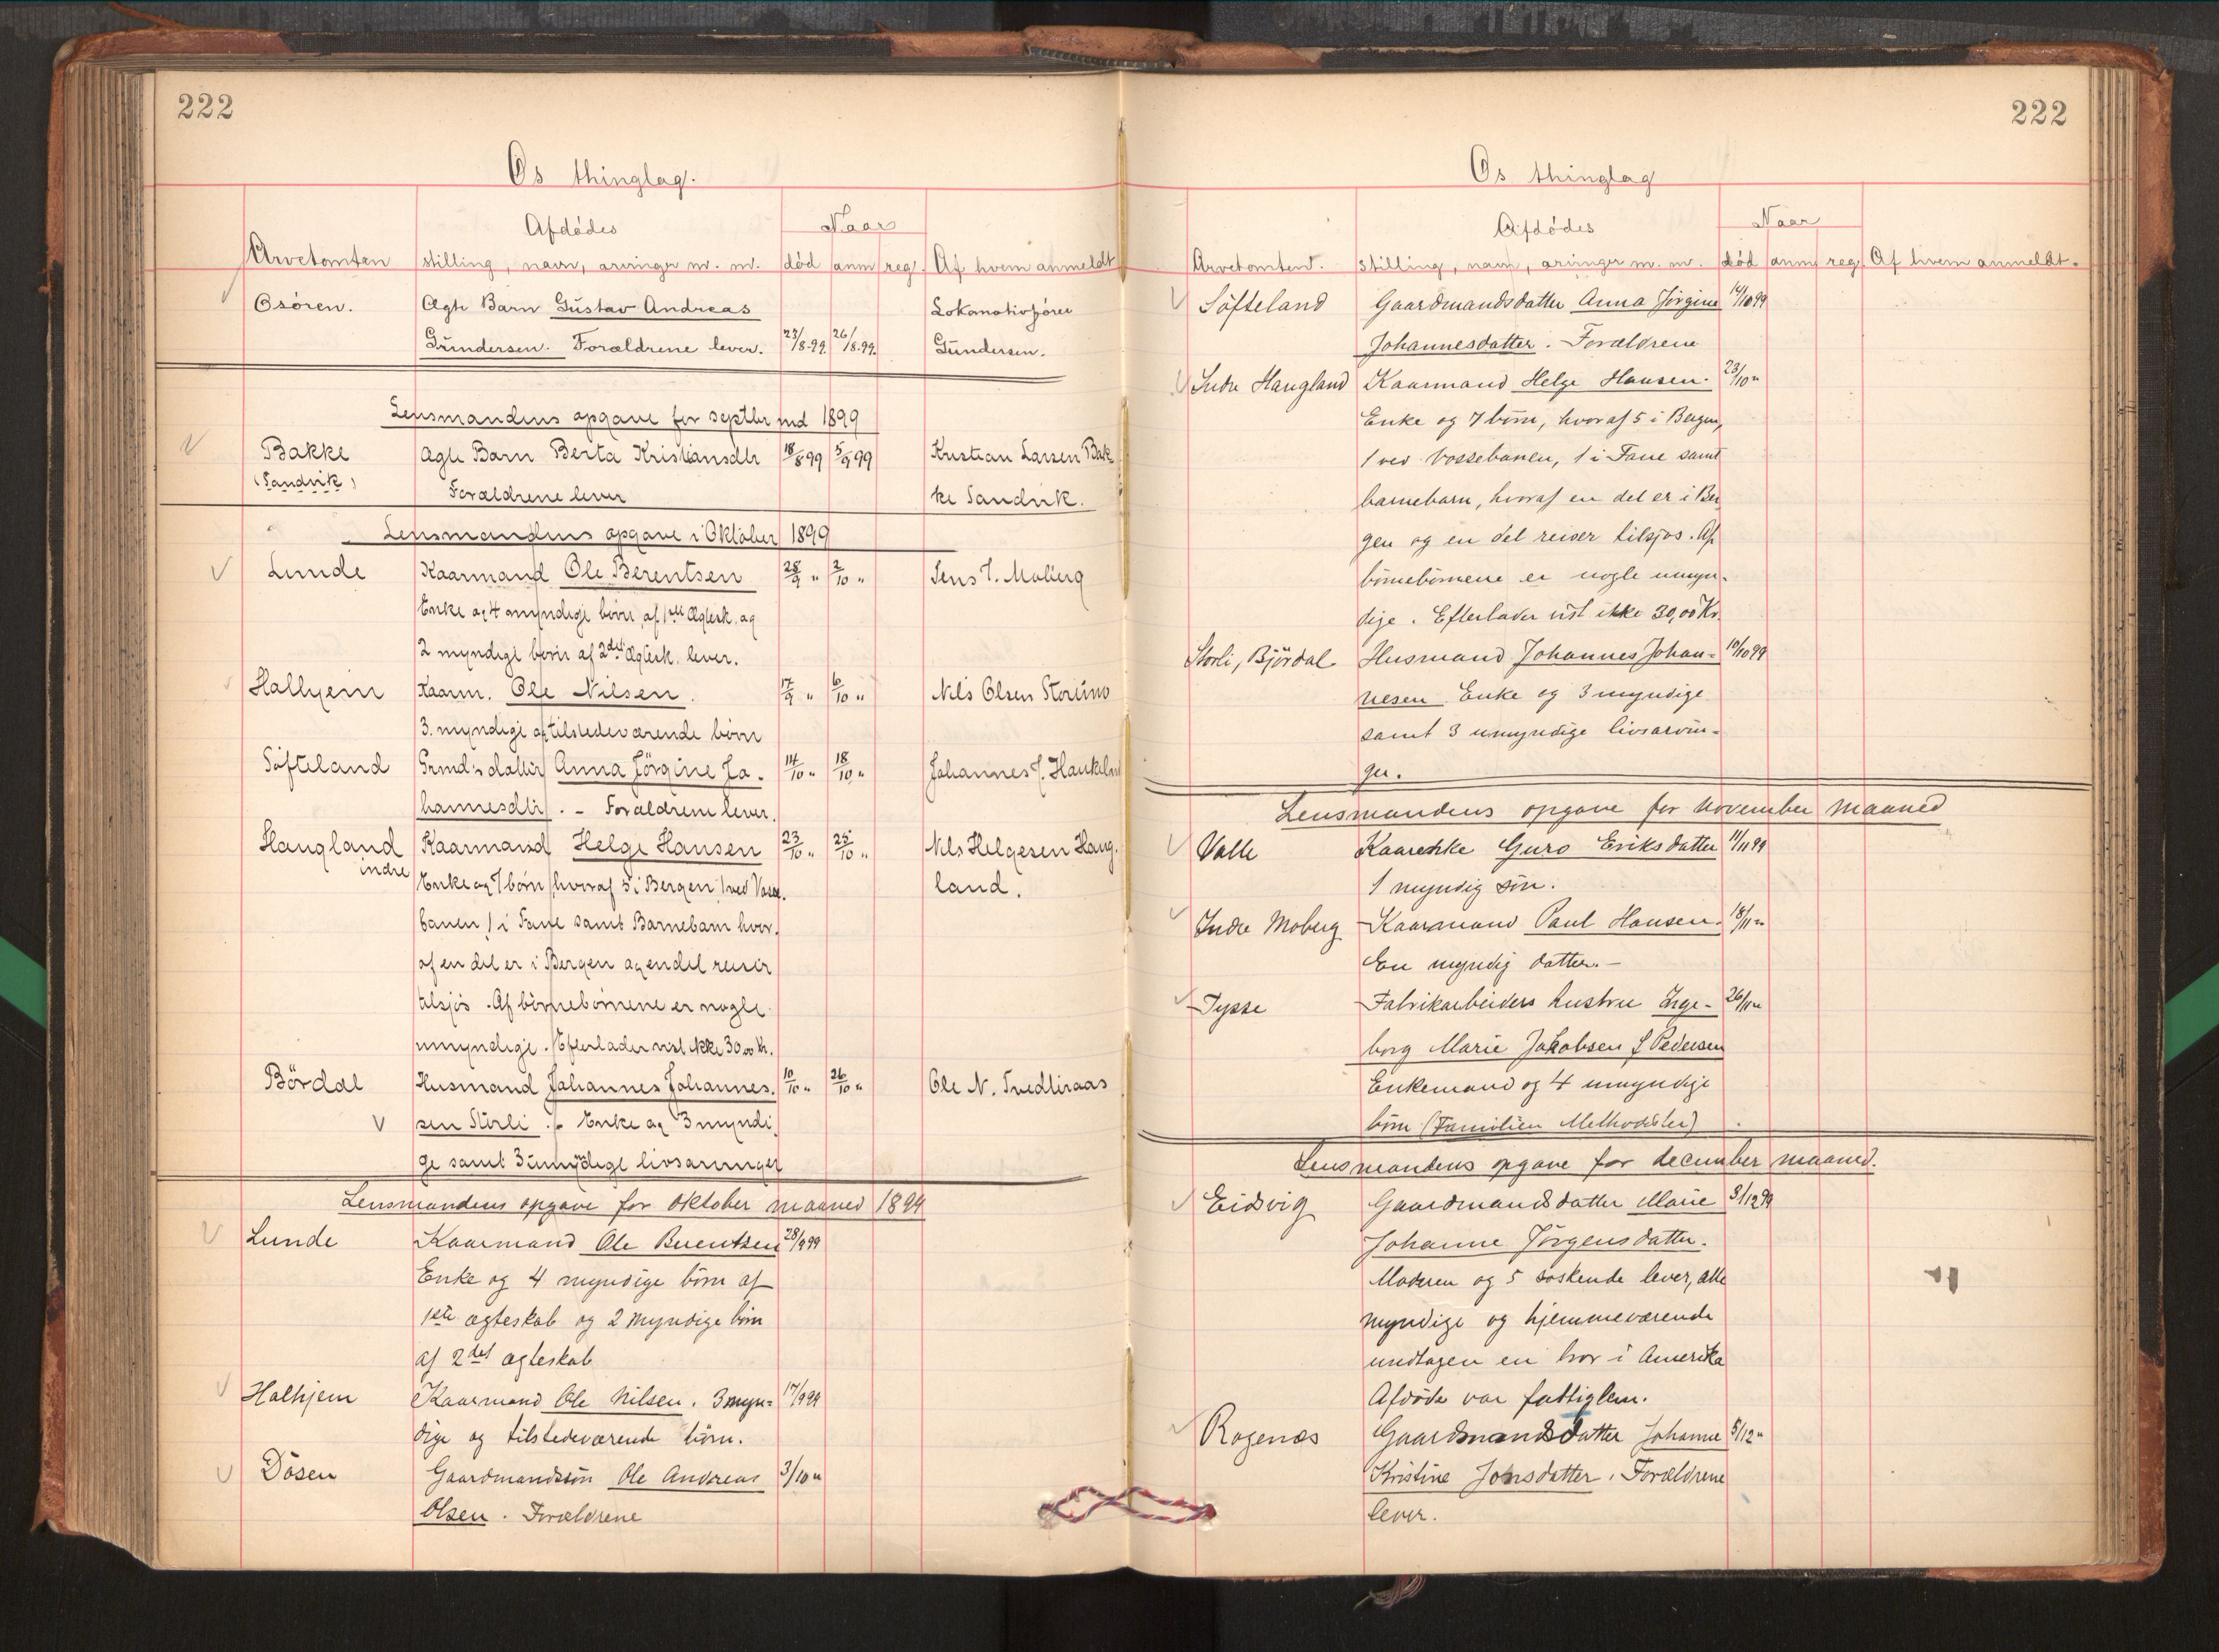 222
Os thinglag.
Afdödes
Naar
Arvetomten
stilling, navn, arvinger m. m.
död
anm
reg.
Af hvem anmeldt
Osören.
Ægte Barn Gustav Andreas
Lokomotivförer
Gundersen. Forældrene lever.
23/8-99
26/8.99.
Gundersen.
Lensmandens opgave for septbr md 1899
Bakke
Ægte Barn Berta Kristiansdtr
18/8 99
5/9 99
Kristian Larsen Bak
(Sandvik)
Forældrene lever
ke Sandvik.
Lensmandens opgave i Oktober 1899
Lunde
Kaarmand Ole Berentsen
28/9 "
2/10 "
Jens J. Moberg
Enke og 4 myndige börn af 1ste Ægtesk. og
2 myndige börn af 2det Ægtesk. lever.
Hallyem
Kaarm. Ole Nilsen.
17/9 "
6/10 "
Nils Olsen Storumo
3. myndige og tilstedeværende börn
Söfteland
Grmd's datter Anna Jörgine Jo.
14/10 "
18/10 "
Johannes J. Haukeland
hannesdtr. - Forældrene lever.
Haugland
Kaarmand Helge Hansen
23/10 "
25/10 "
Nils Helgesen Haug.
indre
Enke og 7 börn hvoraf 5 i Bergen 1 ved Vosse.
land.
banen 1 i Fane samt Barnebarn hvor.
af en del er i Bergen og en del reiser
tilsjös. Af börnebörnene er nogle
umyndige. Efterlader vist ikke 30,00 Kr.
Bördal
Husmand Johannes Johannes.
10/10 "
26/10 "
Ole N. Tvedteraas
sen Storli. - Enke og 3 myndi
ge samt 3 umyndige livsarvinger
Lensmandens opgave for oktober maaned 1899
Lunde
Kaarmand Ole Berentsen
28/9 99
Enke og 4 myndige börn af
1ste ægteskab og 2 myndige börn
af 2det ægteskab
Halhjem
Kaarmand Ole Nilsen. 3 myn=
17/9 99
dige og tilstedeværende börn.
Dösen
Gaardmandssön Ole Andreas
3/10 "
Olsen. Forældrene
222
Os thinglag
Afdödes
Naar
Arvetomten.
stilling, navn, arvinger m. m.
död
anm
reg
Af hvem anmeldt.
Söfteland
Gaardmandsdatter Anna Jörgine
14/10 99
Johannesdatter. Forældrene
Indre Haugland
Kaarmand Helge Hansen.
23/10 "
Enke og 7 börn, hvoraf 5 i Bergen,
1 ved Vossebanen, 1 i Fane samt
barnebarn, hvoraf en del er i Ber
gen og en del reiser tilsjös. Af
börnebörnene er nogle umyn-
dige. Efterlader vist ikke 30,00 Kr.
Storli, Björdal
Husmand Johannes Johan=
10/10 99
nesen. Enke og 3 myndige
samt 3 umyndige livsarvin=
ger.
Lensmandens opgave for november maaned
Valle
Kaarenke Guro Eriksdatter
11/11 99
1 myndig sön.
Indre Moberg
Kaarmand Paul Hansen.
18/11 "
En myndig datter.-
Tysse
Fabrikarbeiders hustru Inge-
26/11 "
borg Marie Jakobsen f Pedersen
Enkemand og 4 umyndige
börn (Familien Methodister)
Lensmandens opgave for december maaned.
Eidsvig
Gaardmandsdatter Marie
3/12 99
Johanne Jörgensdatter.
Moderen og 5 söskende lever, alle
myndige og hjemmeværende
undtagen en bror i Amerika
Afdöde var fattiglem.
Rogenæs
Gaardmandsdatter Johanne
5/12 "
Kristine Jonsdatter. Forældrene
lever.